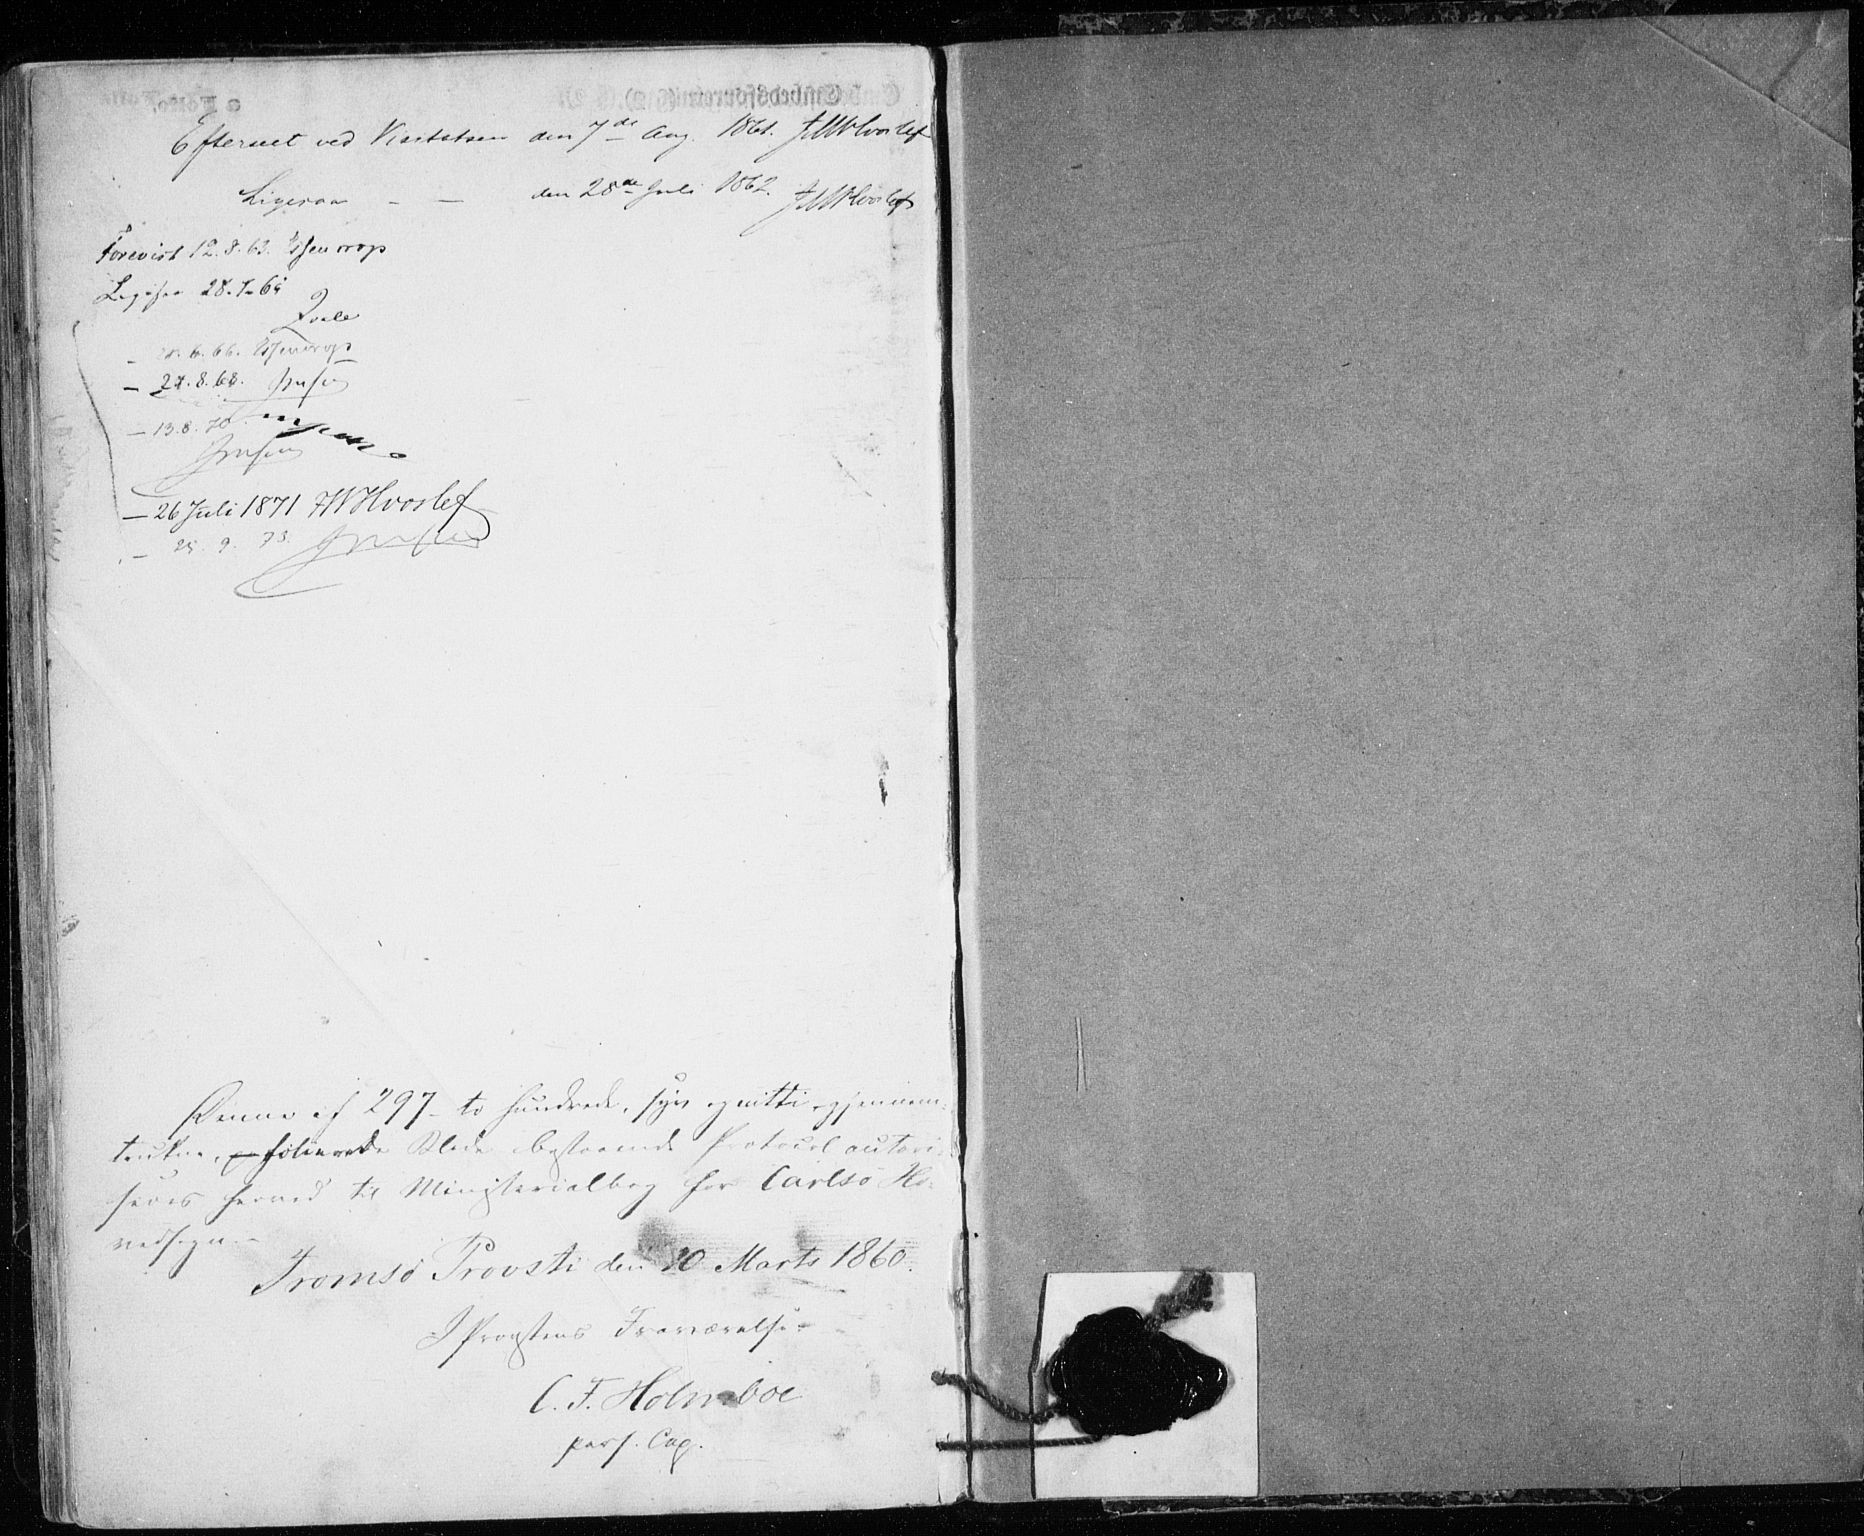 Efterseet ved Visitatsen den 7de Aug. 1861. FWHvoslef
Ligesaa - - den 28de Juli 1862. FWHvoslef
Forevist 12.8.63. Essendrop
Ligesaa 28.7.65
Qvale
- 6.66. Essendrop
- 24.8.68.
- 13.8.70.
- 26 Juli 1871 FWHvoslef
- 25. 9. 73.
Denne af 297 - to hundrede, syv og nitti gjennem-
trukne, folierede Blade bestaaende Protocol autori-
seres herved til Ministerialbog for Carlsø Ho-
vedsogn.
Tromsø Provsti den 20 Marts 1860.
I Provstens Fraværelse
C. F. Holmboe
pers. Cap.